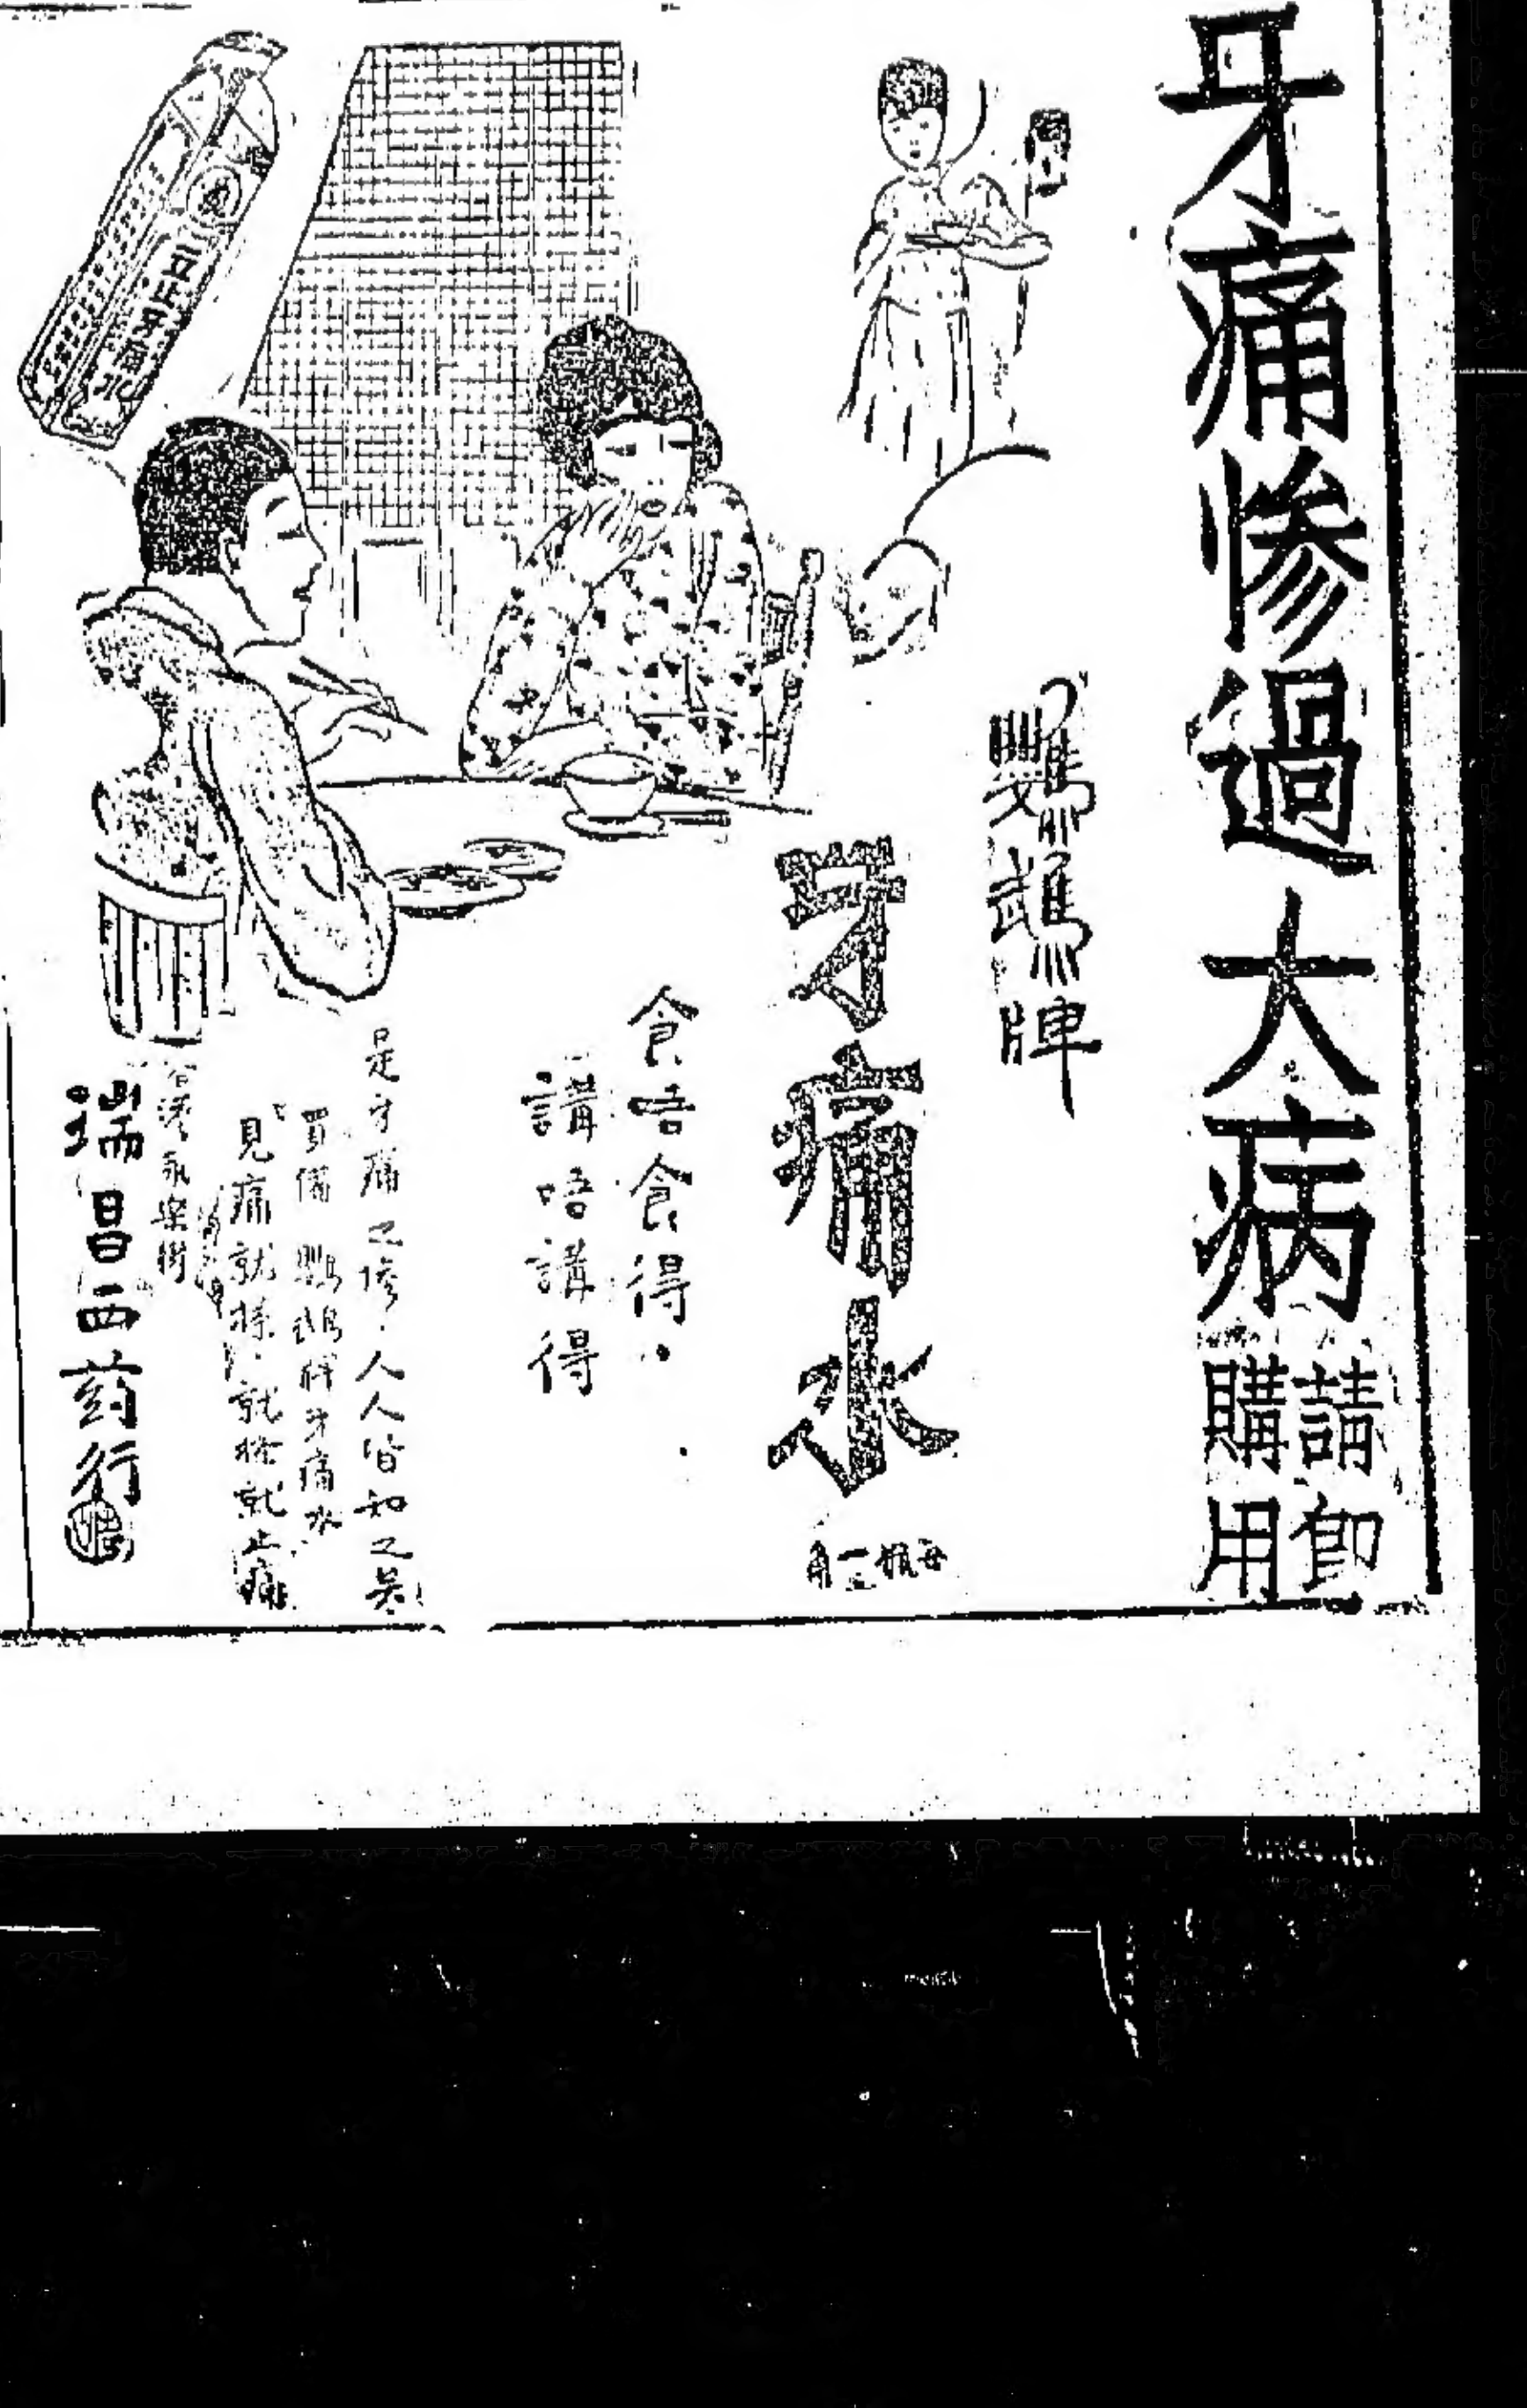 牙痛惨過大病
請即
購用
鸚鵡牌
牙痛水
每瓶一角
食唔食得。
講唔講得
是牙痛之慘。人人皆知之矣
買備鸚鵡牌牙痛水
見痛就搽。就搽就止痛
香港永樂街
瑞昌西葯行